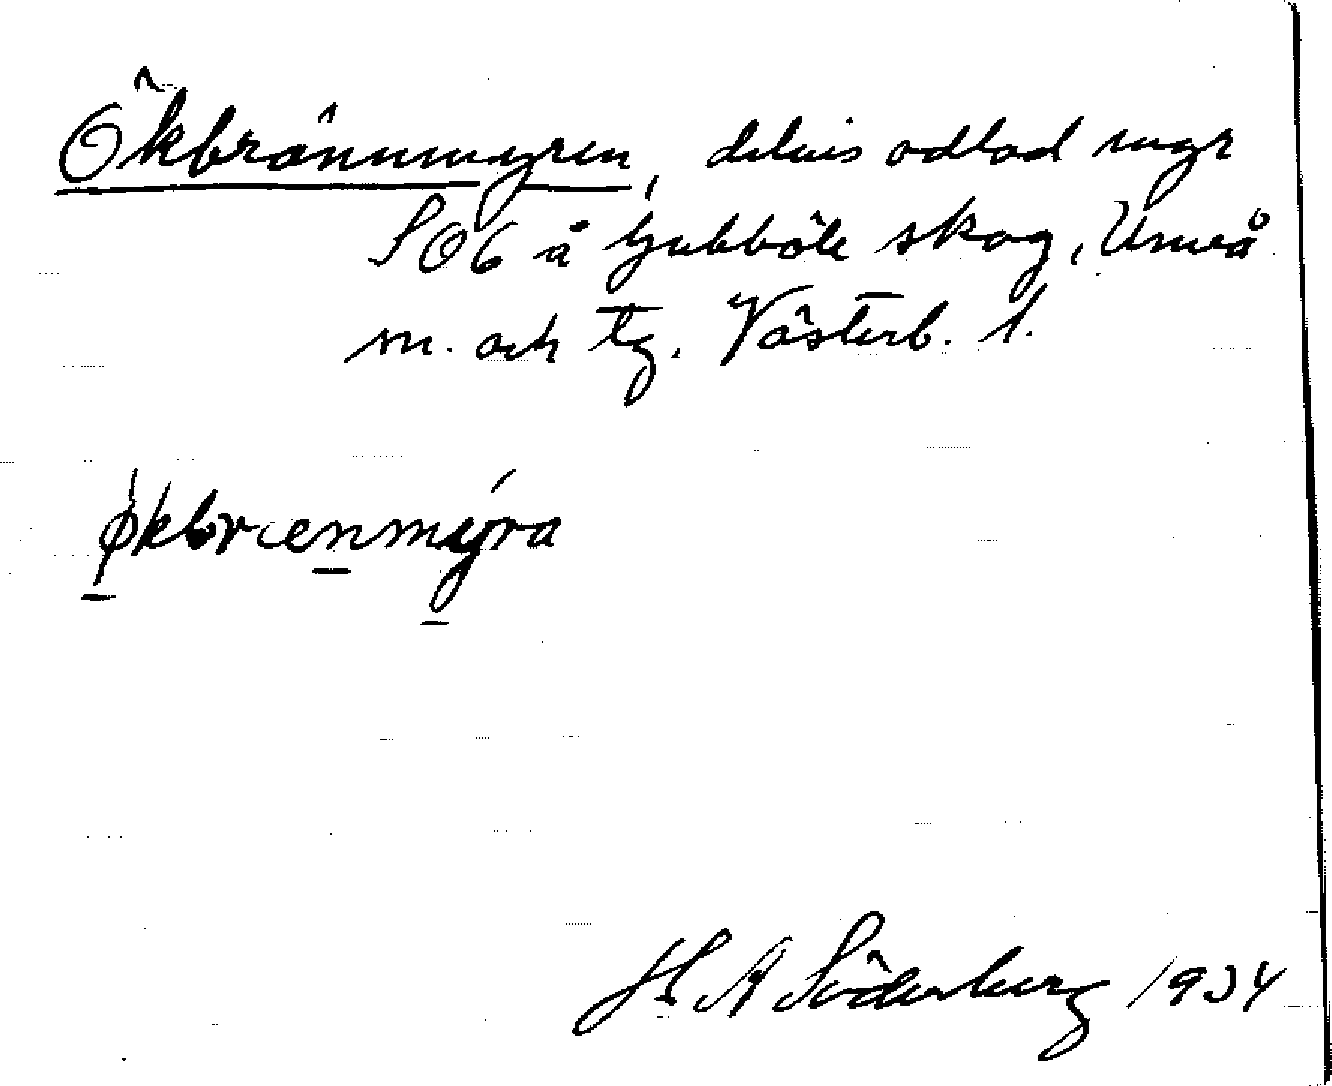 Ökbrännmyren, delvis odlad myr
SO6 å Ljubböle skog, Umeå
m. och tg. Västerb. l.
økbrænmyra
H A Söderberg 1934